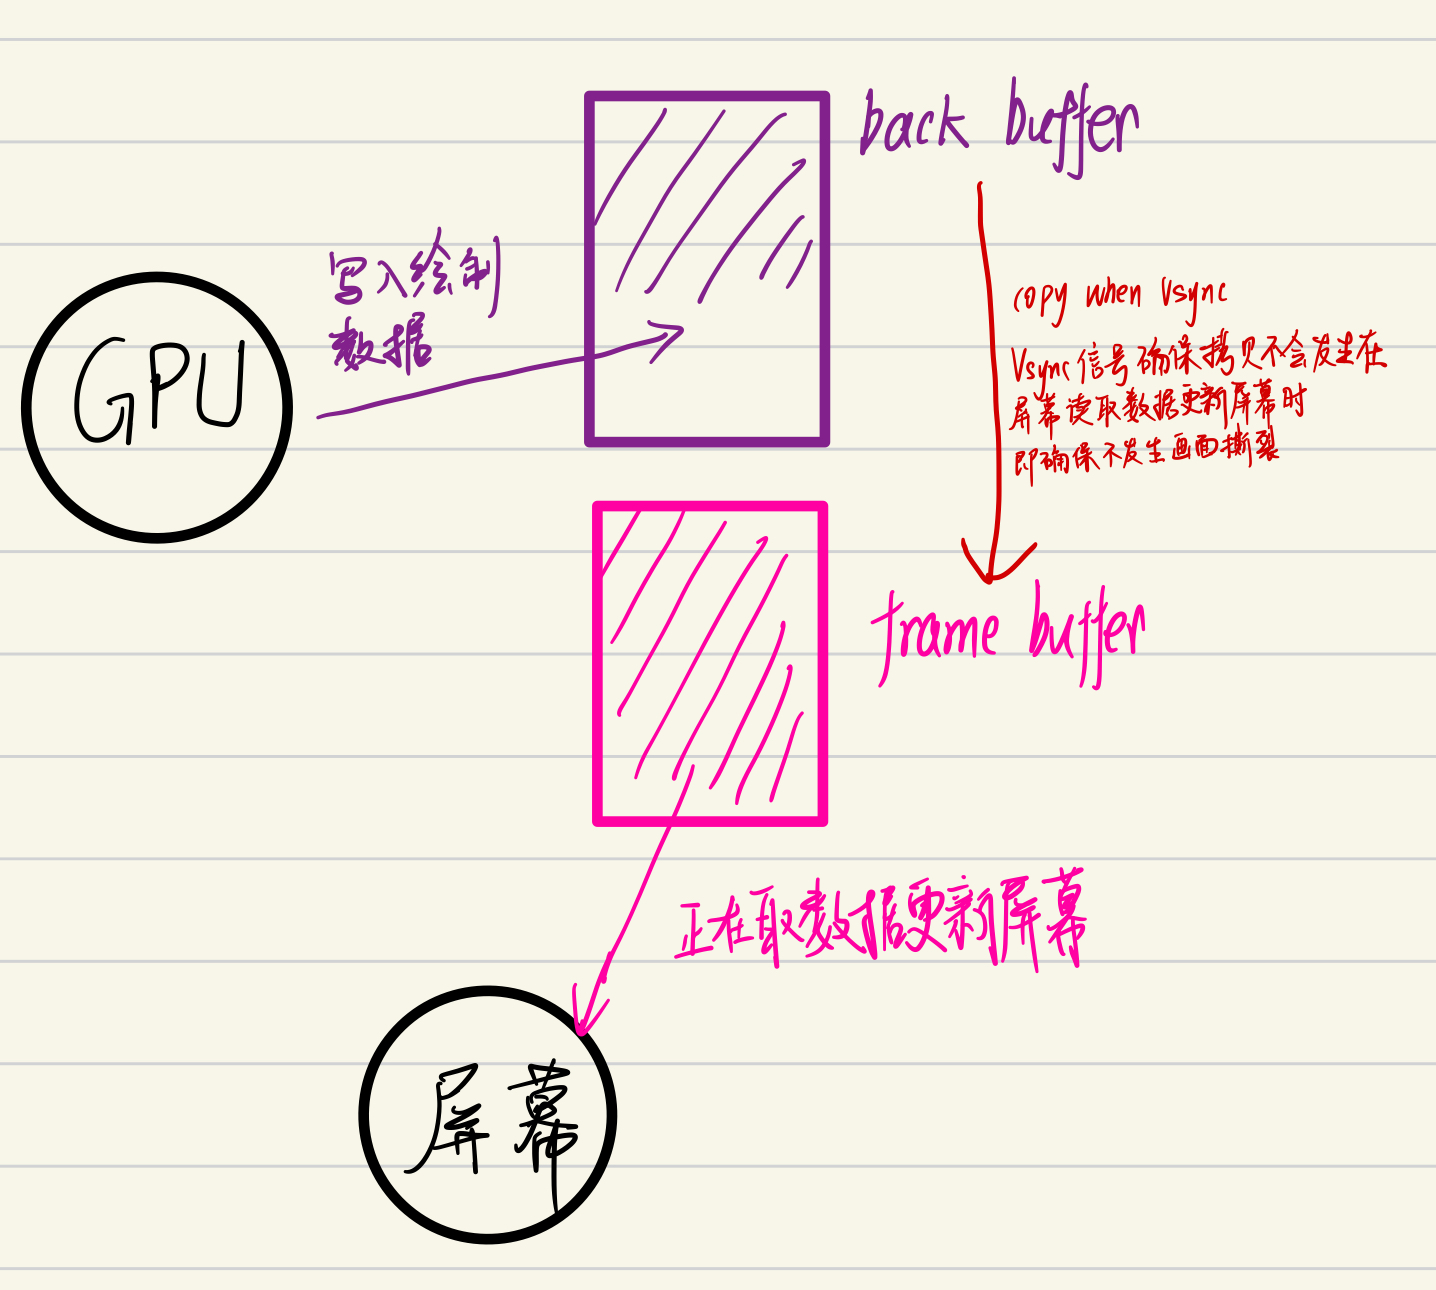 back buffer
写入绘制
数据
GPU
copy when Vsync
Vsync信号确保拷贝不会发生在
屏幕读取数据更新屏幕时
即确保不发生画面撕裂
frame buffer
正在取数据更新屏幕
屏幕